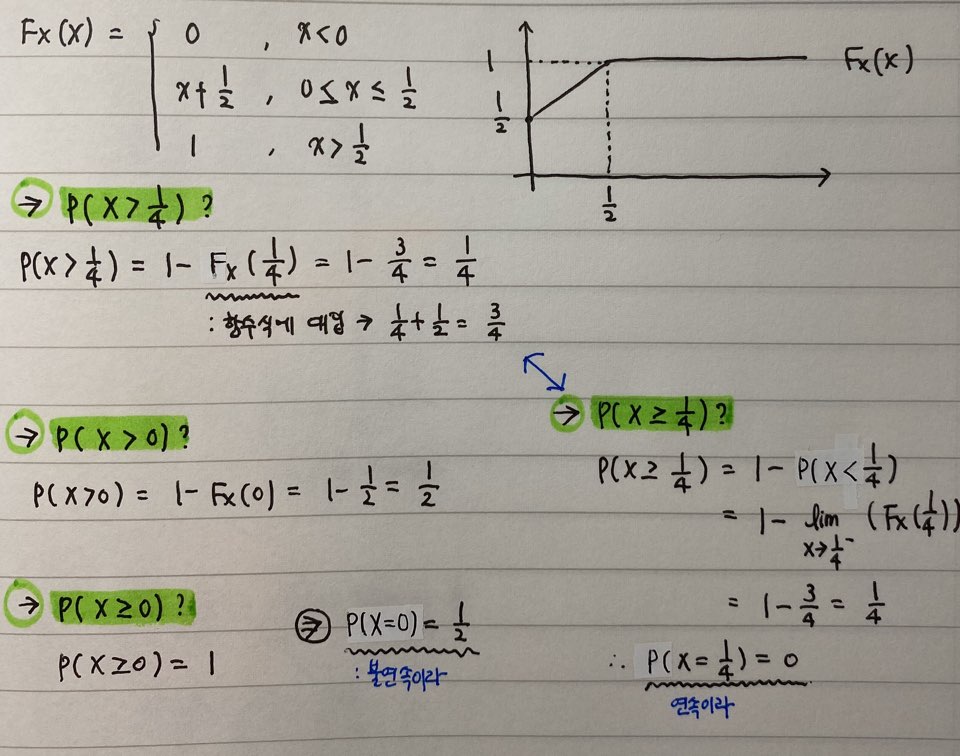 Fx(x) = { 0 , x<0
x+1/2 , 0≤x≤1/2
1 , x>1/2
1
1/2
1/2
Fx(x)
→ P(X>1/4)?
P(X>1/4) = 1- Fx(1/4) = 1- 3/4 = 1/4
: 함수식에 대입 → 1/4+1/2= 3/4
→ P(X>0)?
P(X>0) = 1- Fx(0) = 1- 1/2 = 1/2
→ P(X≥0)?
P(X≥0) = 1
⇒ P(X=0) = 1/2
: 불연속이라
→ P(X≥1/4)?
P(X≥ 1/4) = 1- P(X<1/4)
= 1- lim x→1/4⁻ (Fx(1/4))
= 1- 3/4 = 1/4
∴ P(X=1/4) = 0
연속이라